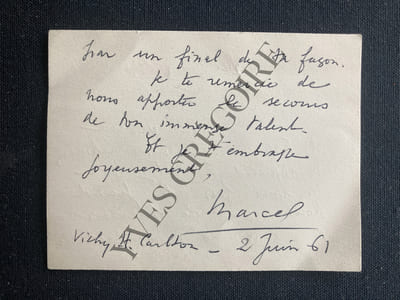 par un final de ta façon.
Je te remercie de
nous apporter le secours
de ton immense talent.
Et je t'embrasse
joyeusement,
Marcel
Vichy H. Carlton – 2 Juin 61
YVES GREGOIRE